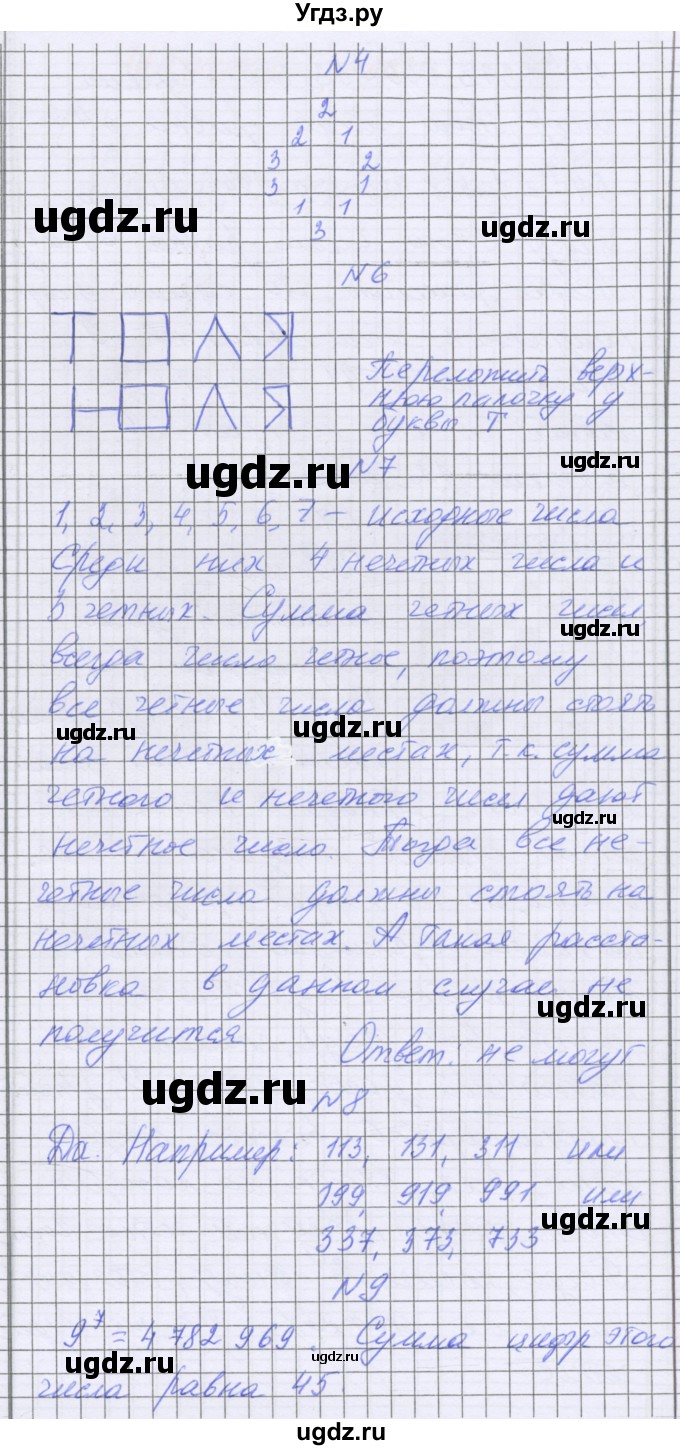 Угдз.ру
N4
2
2 1
3 2
3 1
1 1
3
ugdz.ru ugdz.ru
N6
Т О Л Я
Переложить верх-
нюю палочку у
буквы Т
Н О Л Я
ugdz.ru ugdz.ru
N7
1, 2, 3, 4, 5, 6, 7 – исходные числа
Среди них 4 нечетных числа и
3 четных. Сумма четных чисел
ugdz.ru
всегда число четное, поэтому
все четные числа должны стоять
ugdz.ru ugdz.ru
на нечетных местах, т.к. сумма
четного и нечетного чисел дают
ugdz.ru
нечетное число. Тогда все не-
четные числа должны стоять на
нечетных местах. А такая расста-
новка в данном случае не
ugdz.ru
получится
Ответ: не могут
ugdz.ru
N8
Да. Например: 113, 131, 311 или
199, 919, 991 или
ugdz.ru
337, 373, 733
N9
9⁷ = 4 782 969. Сумма цифр этого
ugdz.ru ugdz.ru
числа равна 45
ugdz.ru